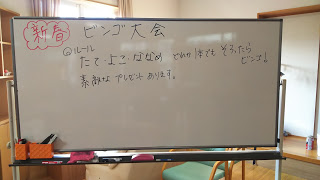 新春 ビンゴ大会
◎ルール
たて・よこ・ななめ どれか1本でも そろったら
ビンゴ！
素敵な プレゼント あります。